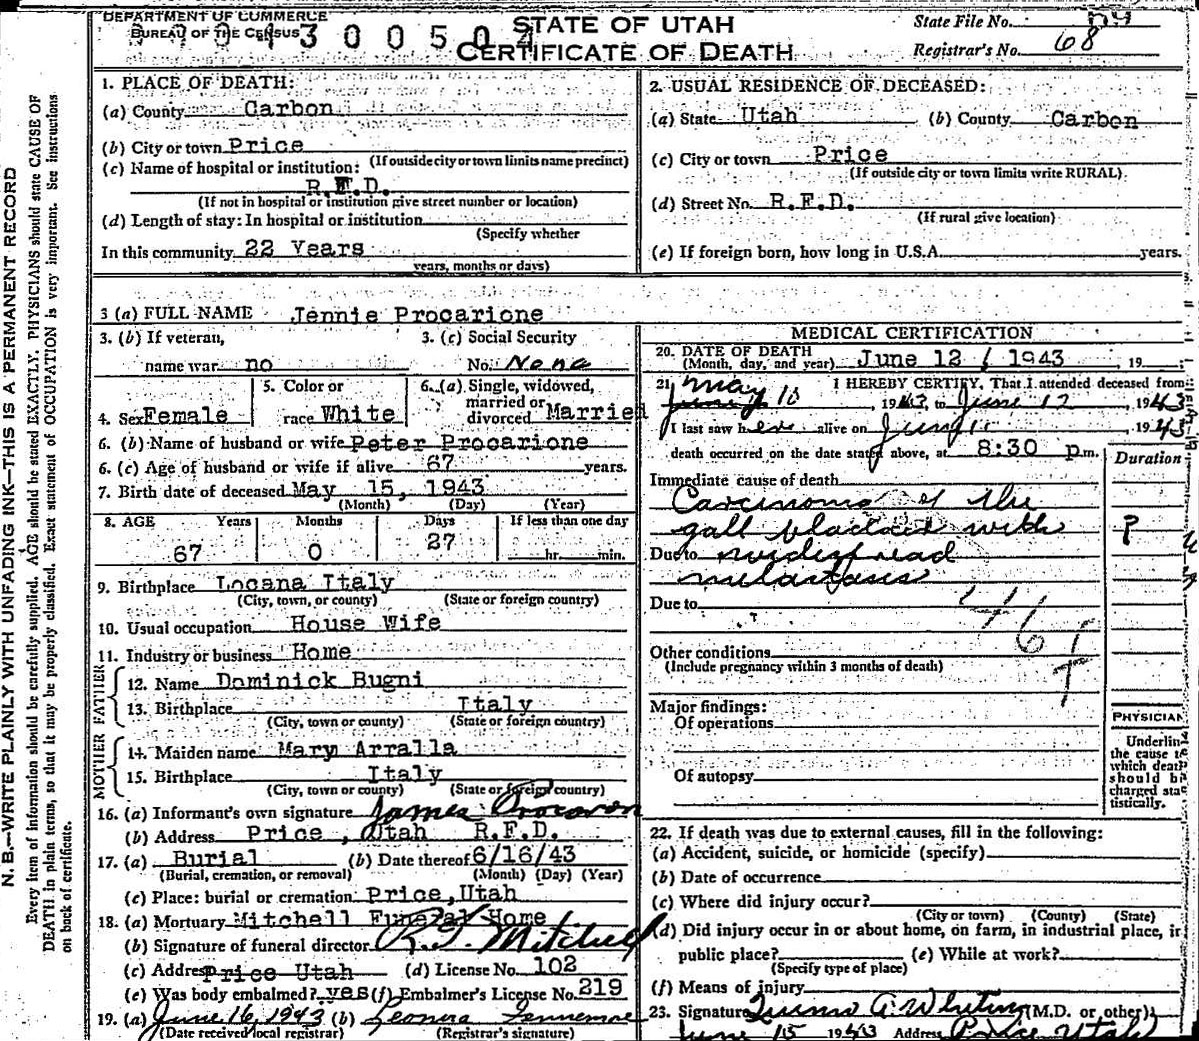 DEPARTMENT OF COMMERCE
BUREAU OF THE CENSUS
STATE OF UTAH
CERTIFICATE OF DEATH
State File No.
Registrar's No. 68
N. B.—WRITE PLAINLY WITH UNFADING INK—THIS IS A PERMANENT RECORD
Every item of information should be carefully supplied. AGE should be stated EXACTLY. PHYSICIANS should state CAUSE OF
DEATH in plain terms, so that it may be properly classified. Exact statement of OCCUPATION is very important. See instructions
on back of certificate.
1. PLACE OF DEATH:
(a) County Carbon
(b) City or town Price
(If outside city or town limits name precinct)
(c) Name of hospital or institution:
R.F.D.
(If not in hospital or institution give street number or location)
(d) Length of stay: In hospital or institution
(Specify whether
In this community 22 Years
years, months or days)
2. USUAL RESIDENCE OF DECEASED:
(a) State Utah (b) County Carbon
(c) City or town Price
(If outside city or town limits write RURAL)
(d) Street No. R.F.D.
(If rural give location)
(e) If foreign born, how long in U.S.A. years.
3 (a) FULL NAME Jennie Procarione
3. (b) If veteran, 3. (c) Social Security
name war no No. None
4. Sex Female 5. Color or race White 6. (a) Single, widowed, married or divorced Married
6. (b) Name of husband or wife Peter Procarione
6. (c) Age of husband or wife if alive 67 years.
7. Birth date of deceased May 15, 1943
(Month) (Day) (Year)
8. AGE Years Months Days If less than one day
67 0 27 hr. min.
9. Birthplace Locana Italy
(City, town, or county) (State or foreign country)
10. Usual occupation House Wife
11. Industry or business Home
FATHER
12. Name Dominick Bugni
13. Birthplace Italy
(City, town or county) (State or foreign country)
MOTHER
14. Maiden name Mary Arralla
15. Birthplace Italy
(City, town or county) (State or foreign country)
16. (a) Informant's own signature James Procaron
(b) Address Price, Utah R.F.D.
17. (a) Burial (b) Date thereof 6/16/43
(Burial, cremation, or removal) (Month) (Day) (Year)
(c) Place: burial or cremation Price, Utah
18. (a) Mortuary Mitchell Funeral Home
(b) Signature of funeral director R. F. Mitchell
(c) Address Price Utah (d) License No. 102
(e) Was body embalmed? yes (f) Embalmer's License No. 219
19. (a) June 16, 1943 (b) Leonora
(Date received local registrar) (Registrar's signature)
MEDICAL CERTIFICATION
20. DATE OF DEATH
(Month, day, and year) June 12, 1943, 19
21. I HEREBY CERTIFY, That I attended deceased from
May 10, 1943, to June 12, 1943
I last saw her alive on June 11, 1943
death occurred on the date stated above, at 8:30 p.m.
Duration
Immediate cause of death
Carcinoma of the
gall bladder with ?
Due to widespread
metastasis
Due to
46 f
Other conditions
(Include pregnancy within 3 months of death)
Major findings:
Of operations
Of autopsy
PHYSICIAN
Underline
the cause to
which death
should be
charged sta
tistically.
22. If death was due to external causes, fill in the following:
(a) Accident, suicide, or homicide (specify)
(b) Date of occurrence
(c) Where did injury occur?
(City or town) (County) (State)
(d) Did injury occur in or about home, on farm, in industrial place, in
public place? (e) While at work?
(Specify type of place)
(f) Means of injury
23. Signature Quinn A. Whiting (M.D. or other)
June 15 1943 Address Price Utah